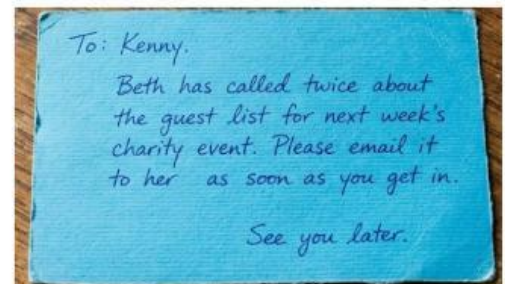 To: Kenny.
Beth has called twice about
the guest list for next week's
charity event. Please email it
to her as soon as you get in.
See you later.